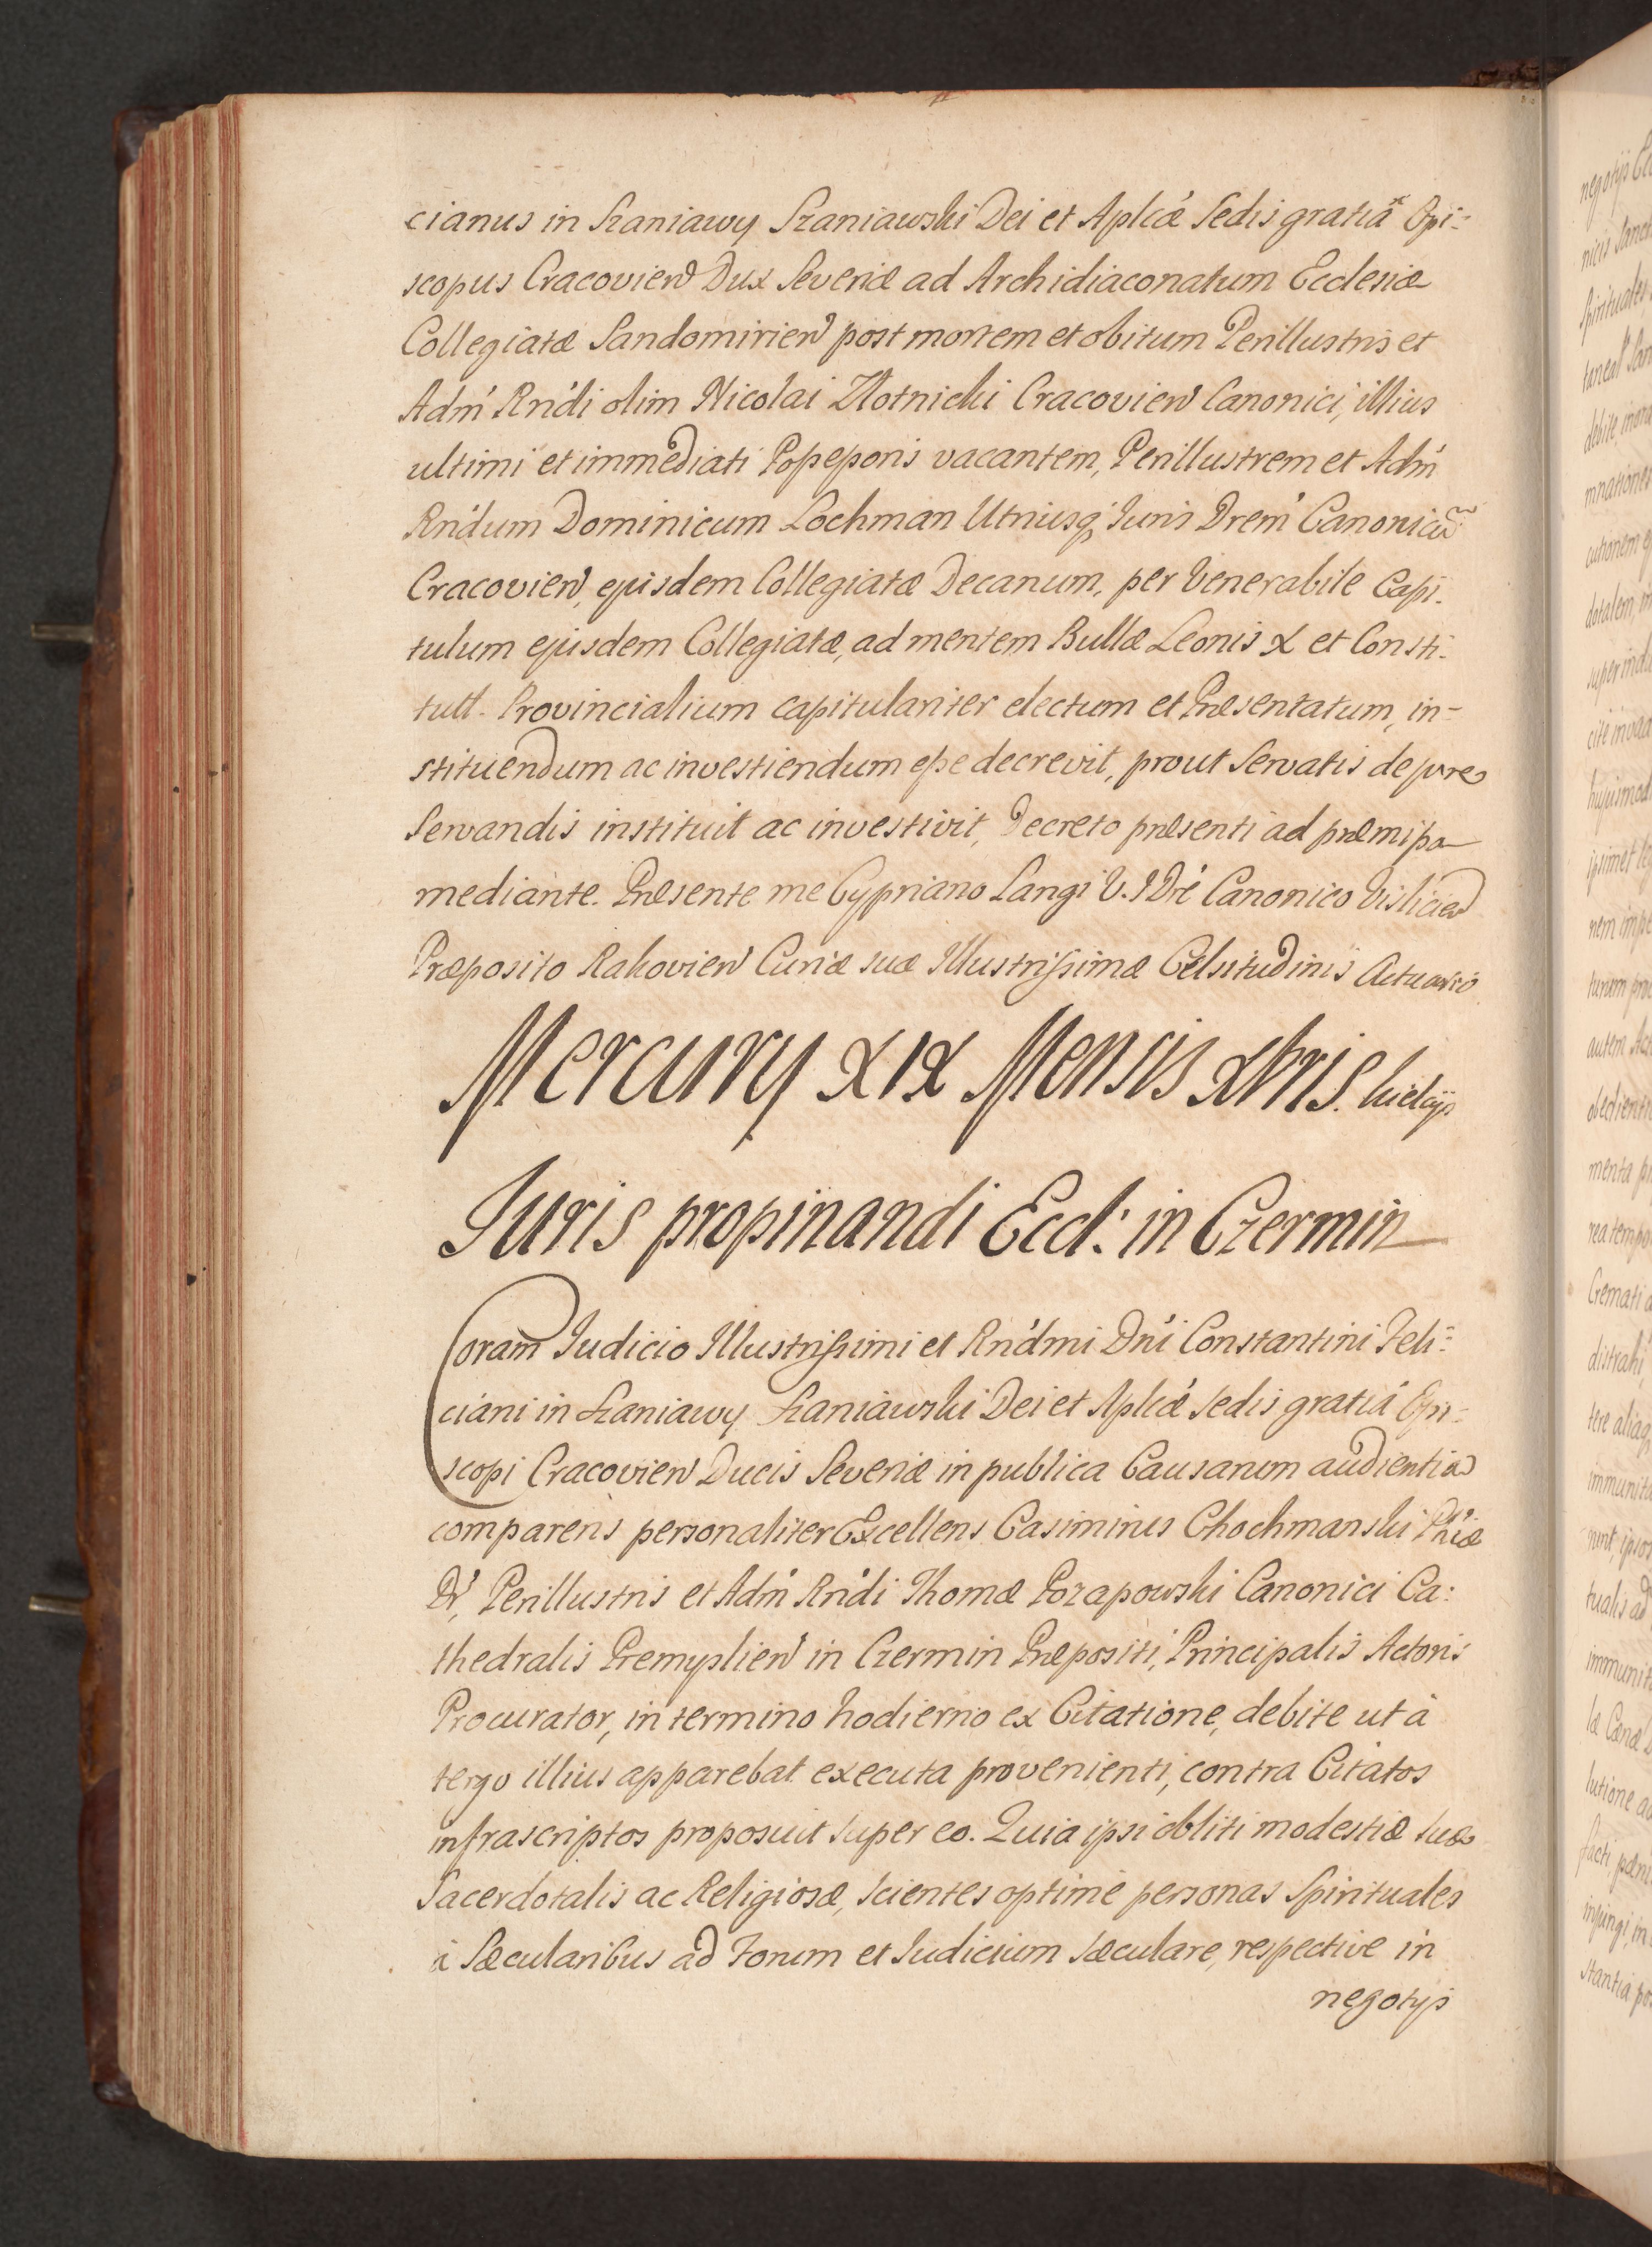 cianus in Szaniawy Szaniawski Dei et Aplicæ Sedis gratiã Epi-
scopus Cracovien Dux Severiæ ad Archidiaconatum Ecclesiæ
Collegiatæ Sandomirien post mortem et obitum Perillustris et
Adm Rndi olim Nicolai Złotnicki Cracovien Canonici, illius
ultimi et immediati Possessoris vacantem, Perillustrem et Adm
Rndum Dominicum Lochman Utriusq Iuris Drem Canonicũ
Cracovien, ejusdem Collegiatæ Decanum, per Venerabile Capi-
tulum ejusdem Collegiatæ, ad mentem Bullæ Leonis X et Consti-
tutt. Provincialium capitulariter electum et Præsentatum, in-
stituendum ac investiendum esse decrevit, prout Servatis de jure
Servandis instituit ac investivit, Decreto præsenti ad præmissa
mediante. Præsente me Cypriano Langi V. I Dre Canonico Vislicien
Præposito Rakovien Curiæ suæ Illustrissimæ Celsitudinis Actuario
Mercury XIX Mensis Xbris. Kielcijs
Iuris propinandi Eccl: in Czermin
Coram Iudicio Illustrissimi et Rndmi Dni Constantini Feli-
ciani in Szaniawy Szaniawski Dei et Aplicæ Sedis gratiá Epi-
scopi Cracovien Ducis Severiæ in publica Causarum audientia
comparens personaliter Excellens Casimirus Chochmanski Phiæ
Dr, Perillustris et Adm Rndi Thomæ Pozapowski Canonici Ca:
thedralis Premyslien in Czermin Præpositi, Principalis Actoris
Procurator, in termino hodierno ex Citatione, debite ut à
tergo illius apparebat executa provenienti, contra Citatos
infrascriptos proposuit super eo. Quia ipsi obliti modestiæ suæ
Sacerdotalis ac Religiosæ, scientes optime personas Spirituales
à Sæcularibus ad Forum et Iudicium Sæculare, respective in
negotijs